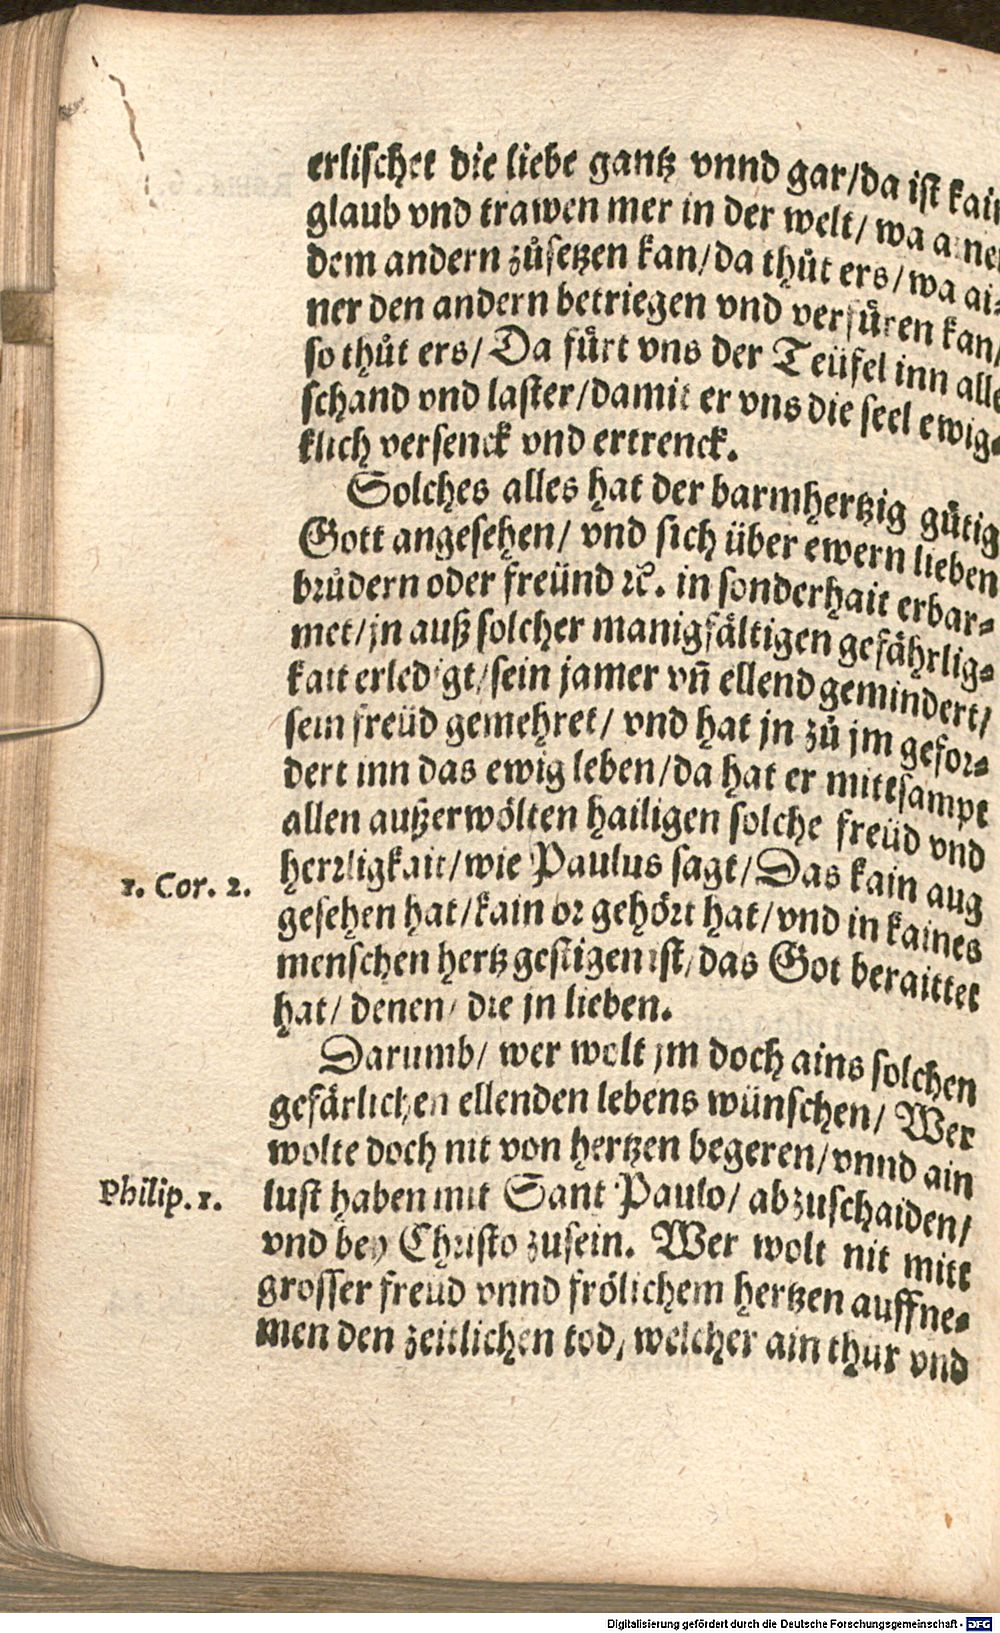 erlischet die liebe gantz vnnd gar/da ist kain
glaub vnd trawen mer in der welt/ wa ainer
dem andern zuͦsetzen kan/da thuͦt ers/ wa ai⸗
ner den andern betriegen vnd verfuͤren kan/
so thuͦt ers/ Da fuͤrt vns der Teüfel inn alle
schand vnd laster/damit er vns die seel ewig⸗
klich versenck vnd ertrenck.
Solches alles hat der barmhertzig guͤtig
Gott angesehen/ vnd sich über ewern lieben
bruͦdern oder freünd ꝛc. in sonderhait erbar⸗
met/jn auß solcher manigfaͤltigen gefaͤhrlig⸗
kait erledigt/sein jamer vñ ellend gemindert/
sein freüd gemehret/ vnd hat jn zuͦ jm gefor⸗
dert inn das ewig leben/da hat er mittsampt
allen außerwoͤlten hailigen solche freüd vnd
herrligkait/wie Paulus sagt/Das kain aug
1. Cor. 2.
gesehen hat/kain or gehoͤrt hat/vnd in kaines
menschen hertz gestigen ist/das Got beraittet
hat/ denen/ die jn lieben.
Darumb/ wer wolt jm doch ains solchen
gefaͤrlichen ellenden lebens wünschen/ Wer
wolte doch nit von hertzen begeren/vnnd ain
Philip. 1.
lust haben mit Sant Paulo/ abzuschaiden/
vnd bey Christo zusein. Wer wolt nit mitt
grosser freud vnnd froͤlichem hertzen auffne⸗
men den zeitlichen tod, welcher ain thur vnd
Digitalisierung gefördert durch die Deutsche Forschungsgemeinschaft - DFG